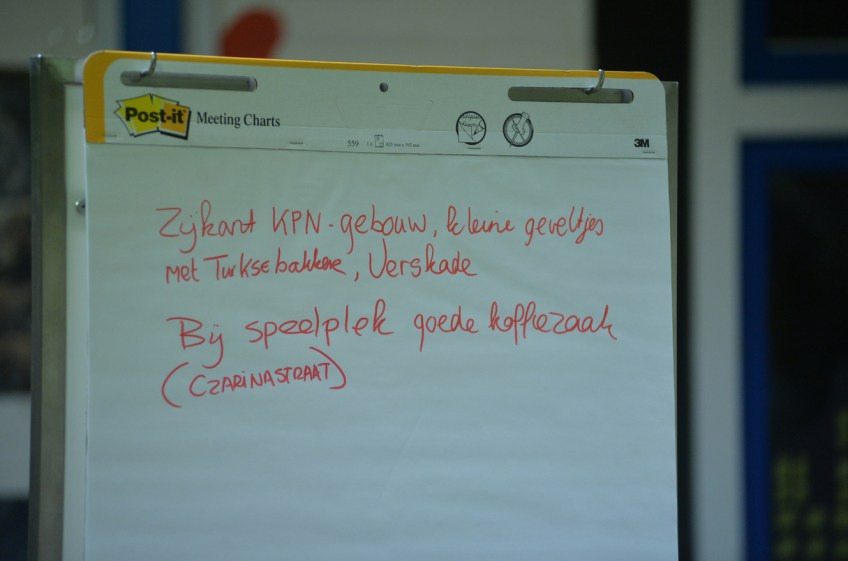 Post-it Meeting Charts
559
3M
Zijkant KPN-gebouw, kleine geveltjes
met Turkse bakkerie, Verskade
Bij speelplek goede koffiezaak
(CZARINASTRAAT)